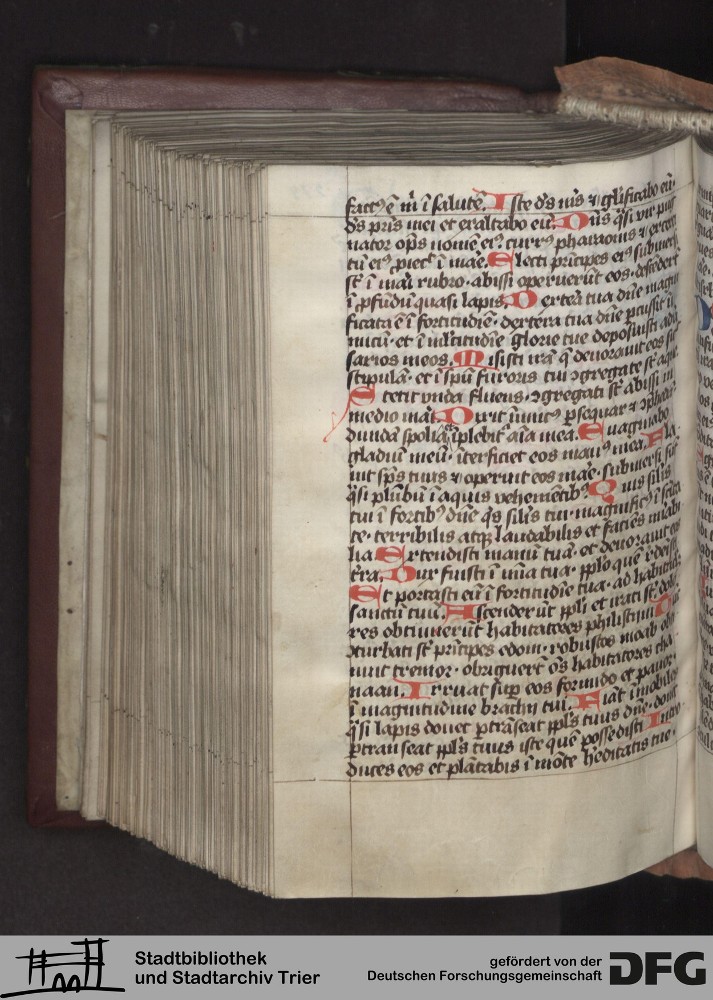 factꝰ ē m̄ ī salutē. Iste ds̄ ms̄ ⁊ gl̄ificabo eū·
ds̄ pr̄is mei et exaltabo eū. Dn̄s q̄si vir pug
nator op̄s nomē eiꝰ. currꝰ pharaonis ⁊ exerci
tū eiꝰ ꝓiecͭ ī maꝛe. Electi pꝛīcipes eiꝰ subm̄si
st̄ ī maꝛi rubro· abissi operuerūt eos· descēderūt
ī ꝓfūdū quasi lapis. Dextera tua dn̄e magni
ficata ē ī fortitudīe· dextera tua dn̄e ꝑcussit ī
micū· et ī ml̄titudīe glorie tue deposuisti adu̾
sarios meos. Misisti irā q̄ deuorauit eos sic̄
stipulā· et ī spū furoris tui ↄgregate st̄ aque.
Stetit vnda fluens· ↄgregati st̄ abissi in
medio maꝛi. Dixit īmicꝰ ꝑsequar ⁊ ↄp̄hēdā
diuidā spolia īplebit̾ aīa mea. Euaginabo
gladiū meū· īterficiet eos manꝰ mea. Fla
uit sps̄ tuus ⁊ operuit eos maꝛe· submersi sūt
q̄si plūbū ī aquis vehemētibꝰ. Quis silis
tui ī fortibꝰ dn̄e q̄s silis tui· magnificꝰ ī scīta
te· terribilis atqꝫ laudabilis et faciēs mirabi
lia. Extendisti manū tuā· et deuorauit eos
t̄ra. Dux fuisti ī mīa tua· pplo quē redēisti
Et portasti eū ī fortitudīe tua· ad habitac̄lm
sanctū tuū. Ascenderūt ppl̄i et irati st̄· dolo
res obtinuerūt habitatores philistiim. Tūc
ↄturbati st̄ pꝛīcipes edom· robustos moab obti
nuit tremor· obriguerūt oēs habitatores cha
naan. Irruat suꝑ eos formido et pauor·
ī magnitudine brachii tui. Fiāt īmobiles
q̄si lapis donec ꝑtrāseat ppl̄s tuus dn̄e· donec
ꝑtranseat ppl̄s tuus iste quē possedisti. Intro
duces eos et plātabis ī mōte h̾editatis tue·
Stadtbibliothek
und Stadtarchiv Trier
gefördert von der
Deutschen Forschungsgemeinschaft
DFG